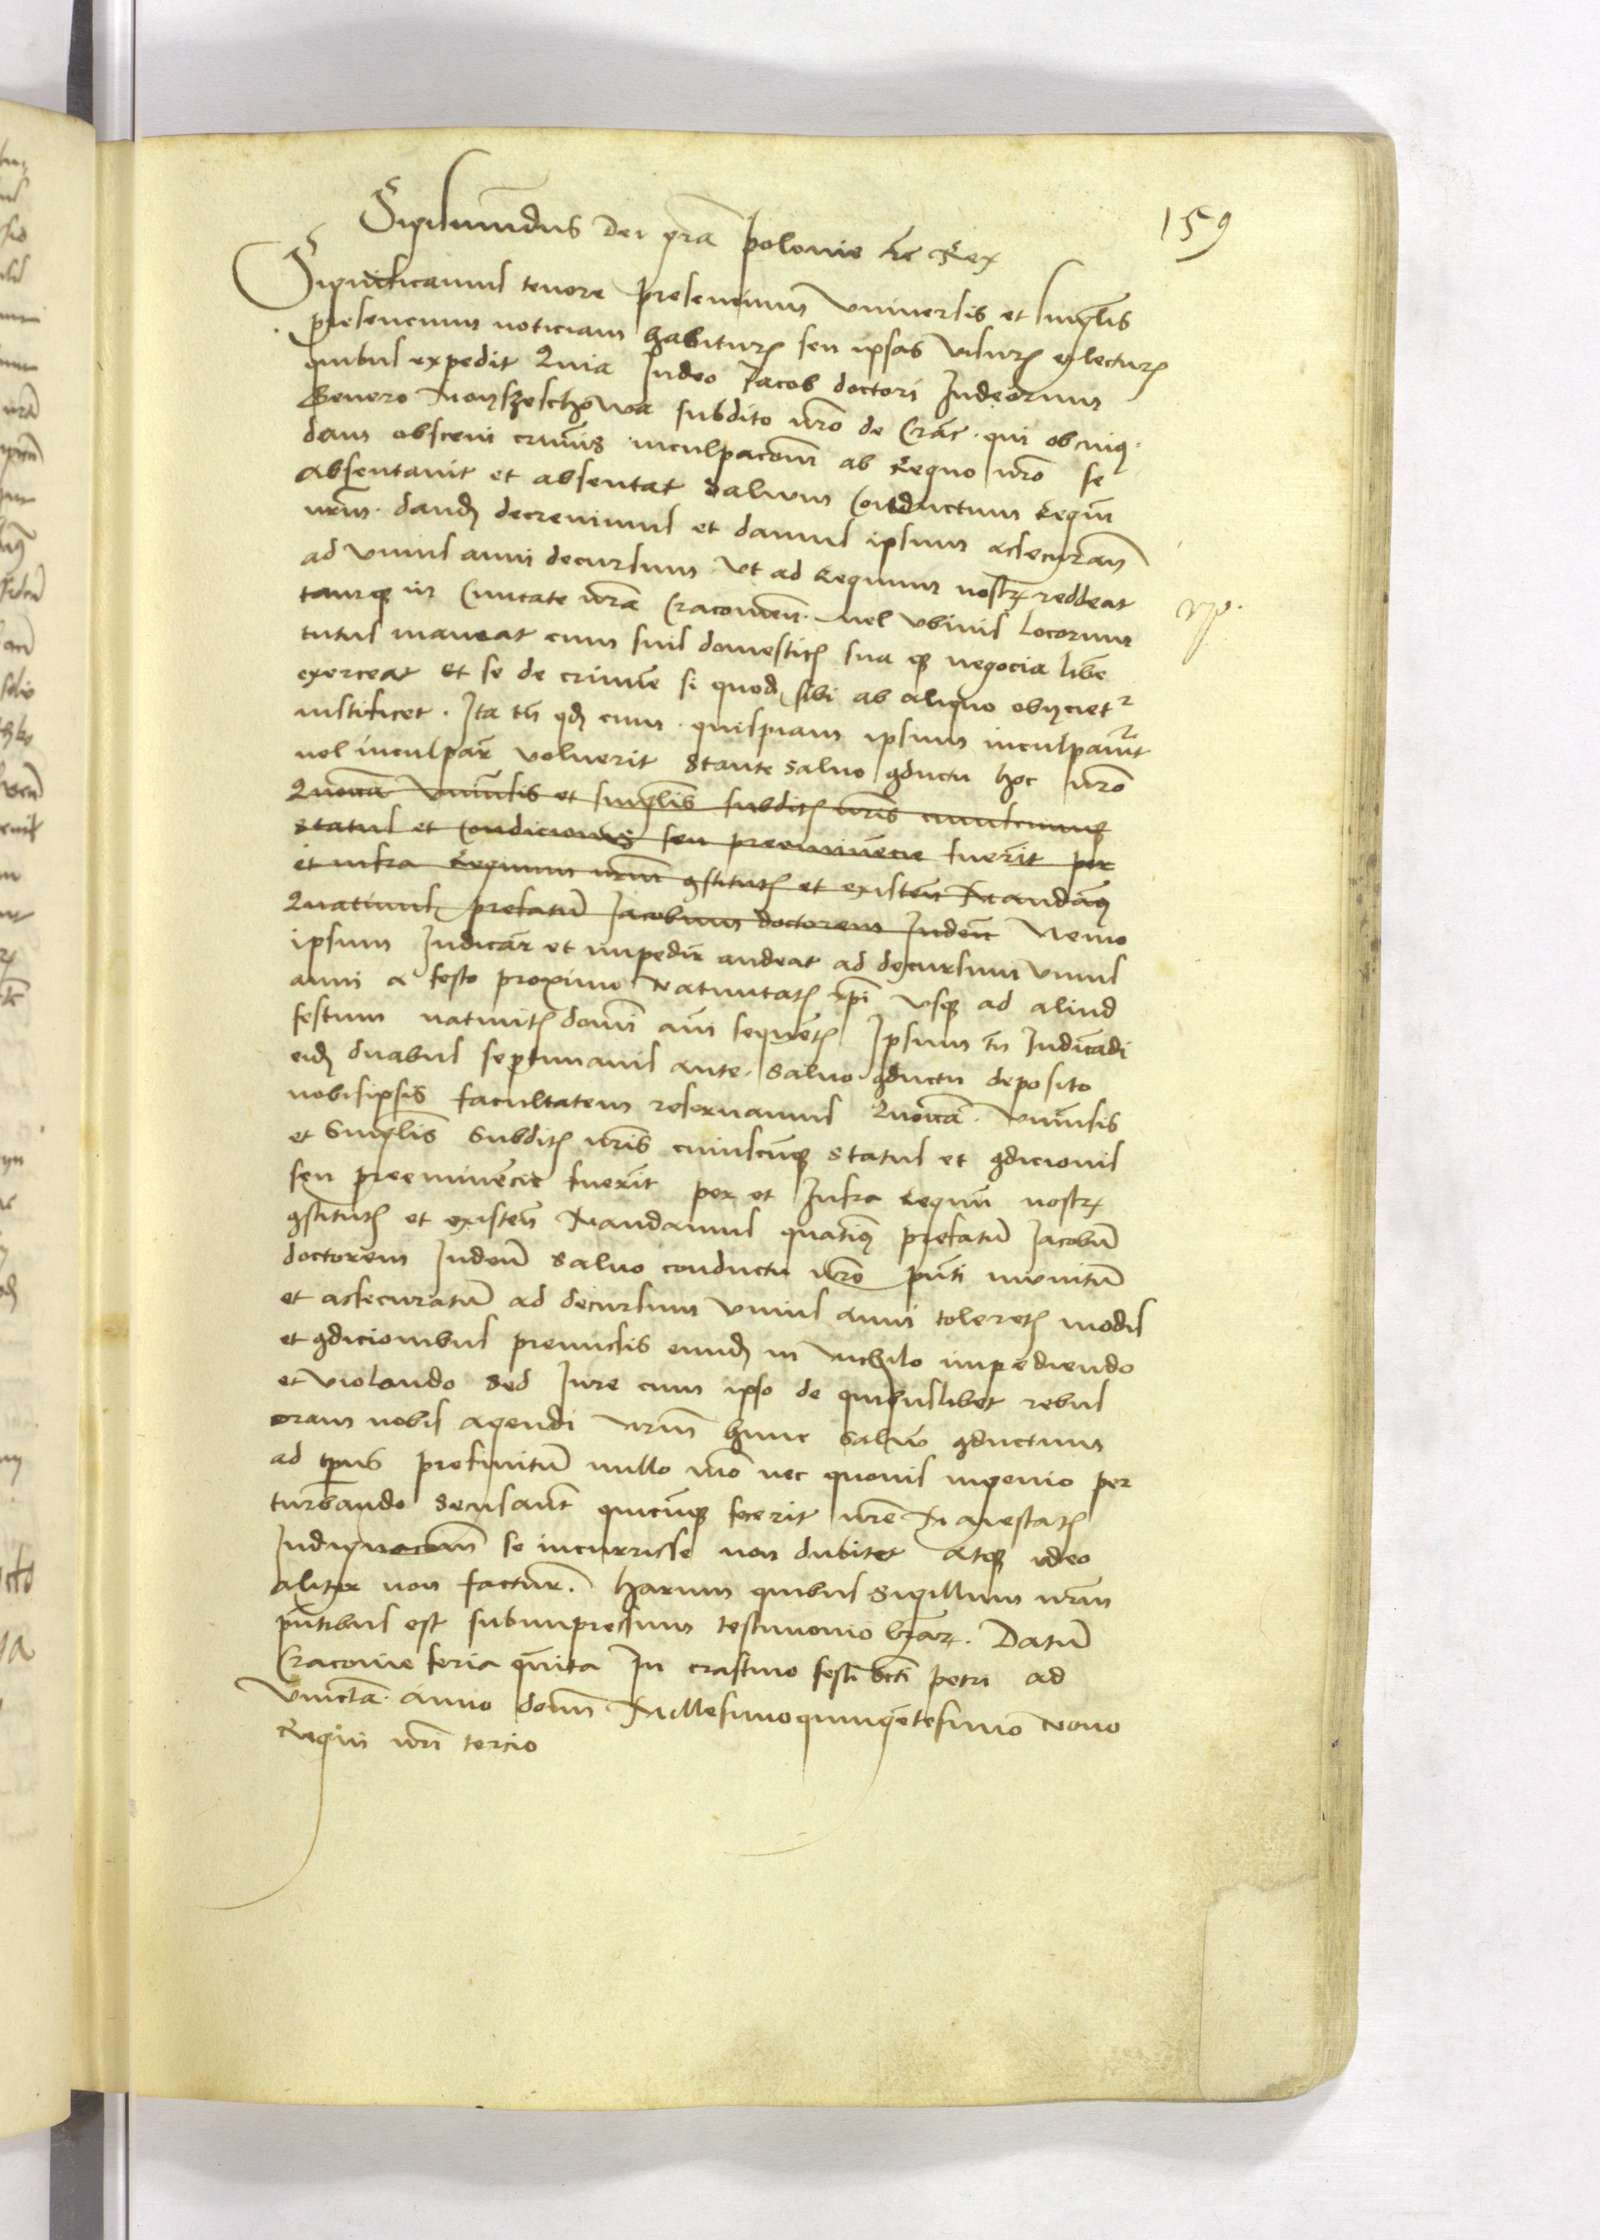 159
Sigismundus dei gra̅ polonie etc Rex
Significamus tenore presencium Vniversis et sing̅lis
presencium noticiam habituris seu ipsas visuris et lecturis
quibus expedit Quia Judeo Jacob doctori Judeorum
Genero subdito nr̅o de Crac̅. qui ob cuius
dam obsceni crim̅is inculpaco̅em ab Regno nr̅o se
absentavit et absentat Salvum Conductum Regiu̅
nr̅m dand decrevimus et damus ipsum assecuran̅
ad vnius anni decursum Vt ad Regnum nostrum reddeat
tamque in Civitate nr̅a Cracovien̅. vel vbivis locorum
tutus maneat cum suis domesticis sua que negocia libe̅
exerceat Et se de crimi̅e si quod sibi ab aliquo obijcietur
iustificet. Ita tn̅ qd cum quispiam ipsum inculpaverit
vel inculpar̅ voluerit Stante salvo conductu hoc nr̅o
Quoca̅ Vniv̅sis et sing̅lis subditis nr̅is cuiuscumque
status et Condicionis seu preemine̅cie fuerit per
et infra Regnum nr̅m constitutis et existen̅ Mandamus
Quatinus prefatu̅ Jacobum doctorem Judeu̅ Nemo
ipsum Judicar̅ et impedir̅ audeat ad decursum vnius
anni a festo proximo Nativitatis xpi̅ Vsque ad aliud
festum nativitis domi̅ an̅i sequen̅tis Ipsum tn̅ Judica̅di
eid duabus septimanis ante salvo conductu deposito
nobisipsis facultatem reservamus Quoca̅ Vniv̅sis
et Sing̅lis Subditis nr̅is cuiuscu̅que Status et condicionis
seu preemine̅cie fuerit per et Infra Regnu̅ nostrum
constitutis et existen̅ Mandamus quatinus prefatu̅ Jacobu̅
doctorem Judeu̅ Salvo conductu nr̅o pn̅ti munitu̅
et assecuratu̅ ad decursum Vnius anni toleretis modis
et condicionibus premissis eund in nichilo impediendo
et violando Sed Jure cum ipso de quibuslibet rebus
coram nobis agendi nr̅m hunc Salvu̅ conductum
ad tp̅us prefinitu̅ nullo mo̅ nec quovis ingenio per
turbando quicu̅que fecerit nr̅e Maiestatis
Indignaco̅em se incurrisse non dubitet atque ideo
aliter non factur̅. Harum quibus Sigillum nr̅m
pn̅tibus est subimpressum testimonio lr̅ar̅. Datu̅
Cracovie feria quinta In crastino festi scti̅ petri ad
Vincl̅a Anno domi̅ Millesimoquinge̅tesimo Nono
Regni nr̅i tercio